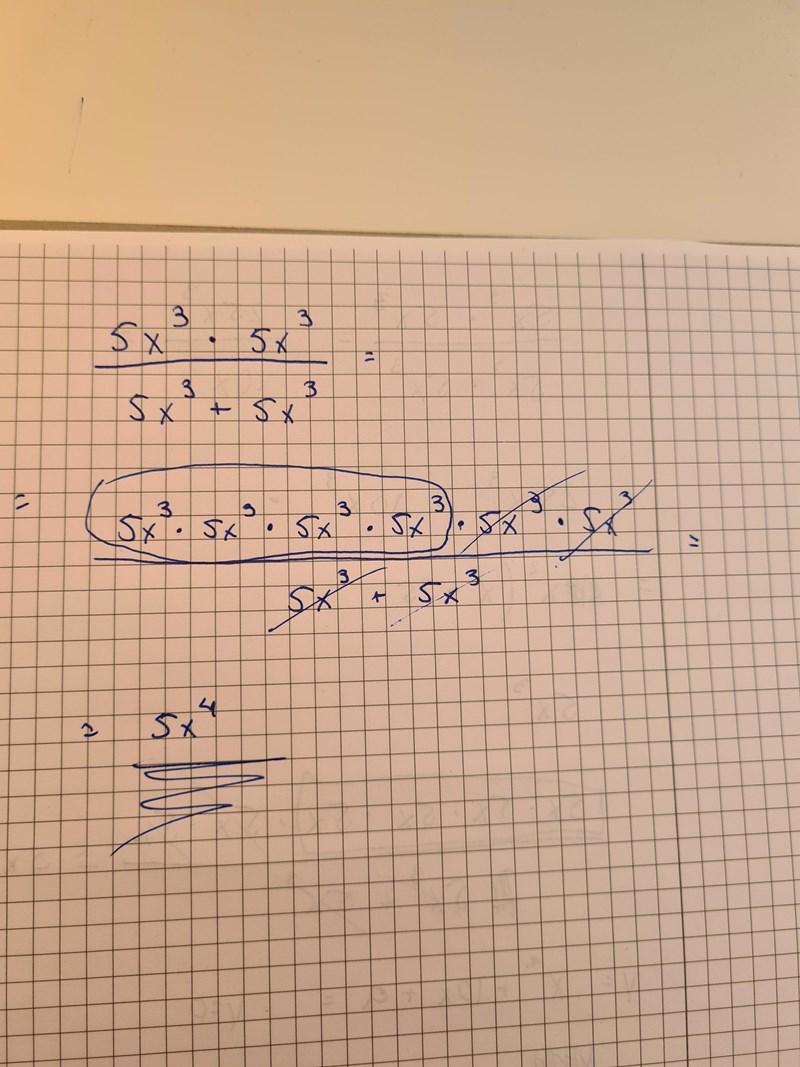 5x³ · 5x³
5x³ + 5x³ =
= 5x³ · 5x³ · 5x³ · 5x³ · 5x³ · 5x³
5x³ + 5x³ =
= 5x⁴